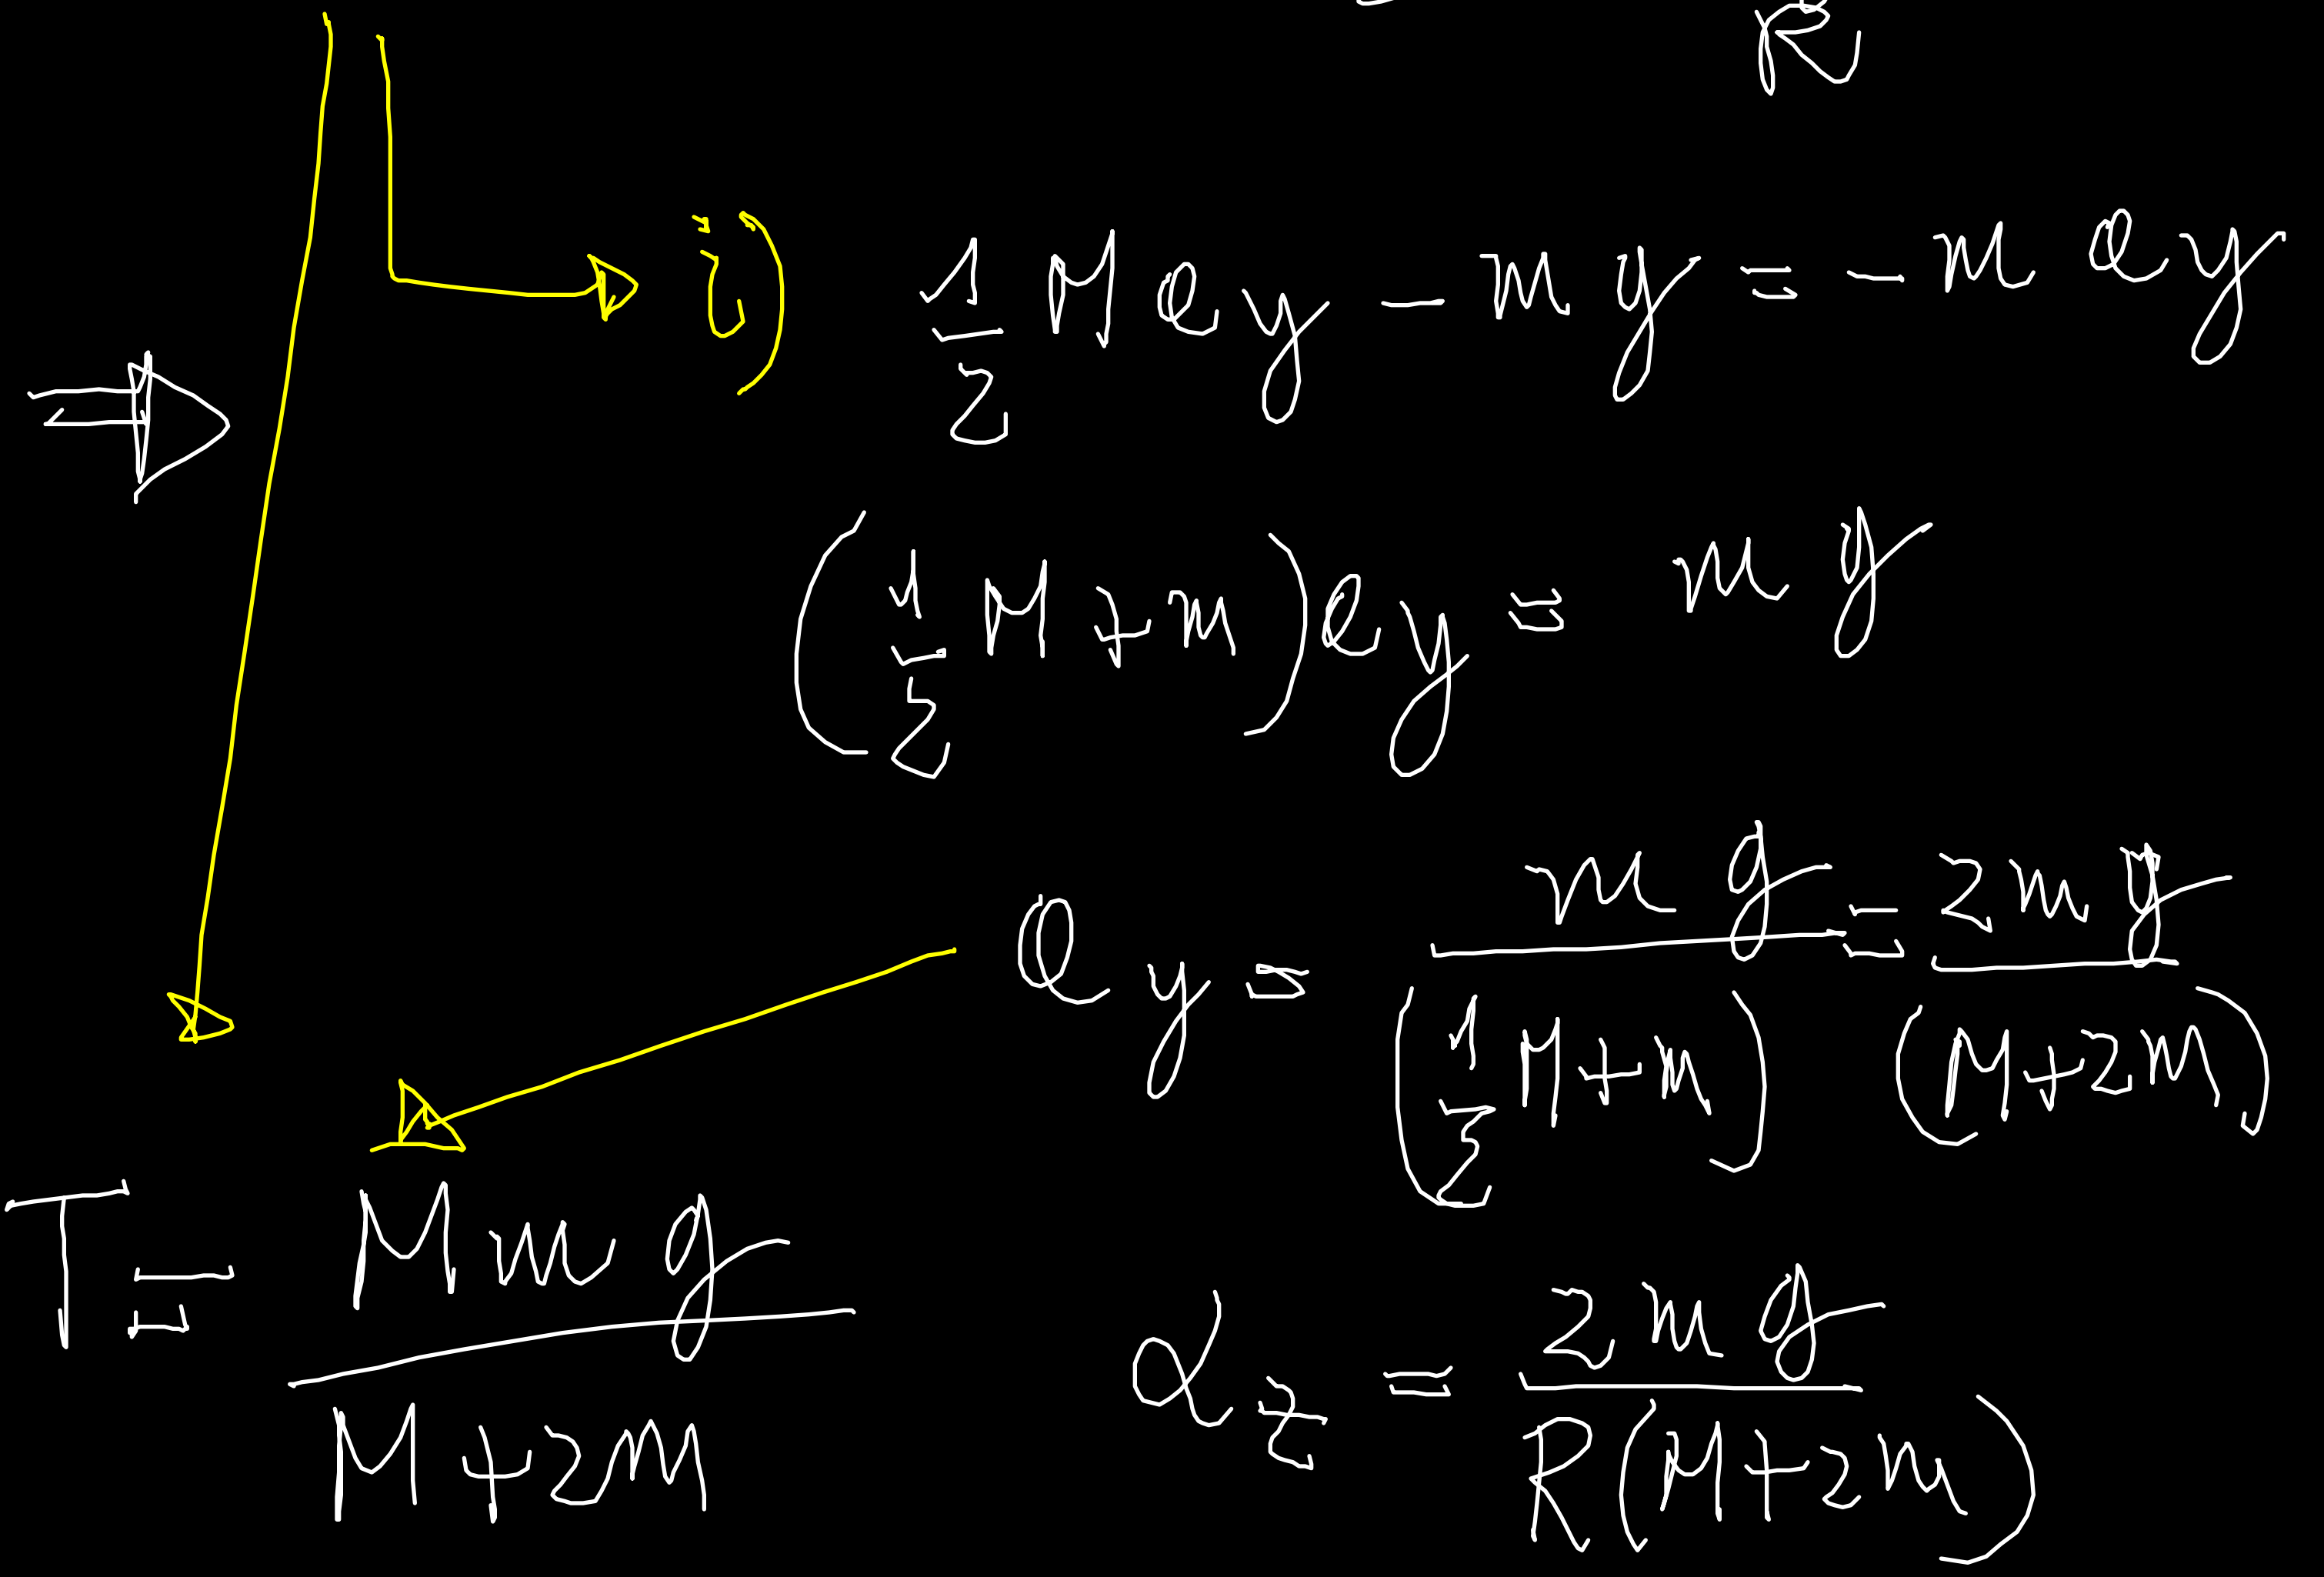 R
i) 1/2 M a y - m g = - m a y
( 1/2 M + m ) a y = m g
a y = m g / ( 1/2 M + m ) = 2 m g / ( M + 2 m )
T = M m g / M + 2 m
α z = 2 m g / R ( M + 2 m )